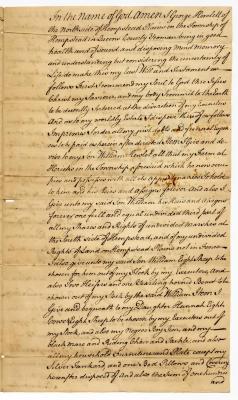 In the name of God Amen I George Hewlett of
the north side of Hempstead Plains in the Township of
Hempstead in Queens County Yeoman being in good
health and of sound and disposing Mind memory
and understanding but considering the uncertainty of
Life do make this my last Will and Testament as
follows First I recommend my Soul to God thro Jesus
Christ my Saviour, and my body I commit to the Earth
to be decently Interred at the discretion of my Executors
And as to my worldly Estate I dispose thereof as follows
Imprimis I order all my just debts and funeral expen
ces be paid as herein after directed Item I give and de
vise to my son William Hewlett all that my Farm at
in the Township aforesaid which he now occu
pies and possesses with the appurtenances to hold
to him and his Heirs and assigns forever. And also I
Give unto my said Son William his Heirs and assigns
forever one full and equal undivided third part of
all my Shares and Rights of undivided meadow at
the South side of Hempstead, and of my undivided
Rights of Land on Hempstead Plains not in Fence
I also give unto my said Son William Eight Sheep to be
chosen for him out of my Stock by my Executors, and
also Two Heifers and one Yearling horned Beast to be
chosen out of my Stock by the said William Item I
Give and bequeath to my Daughter Hannah Eight
Cows Eight Sheep to be chosen by my Executors out of
my Stock, and also my Negroe Boy and my
black mare and Riding Chair and Tackle, and also
all my household Furniture and Plate except my
Silver Tankard and one Bed Pillows and Covering
hereafter disposed of and also the Sum of one hundred
and